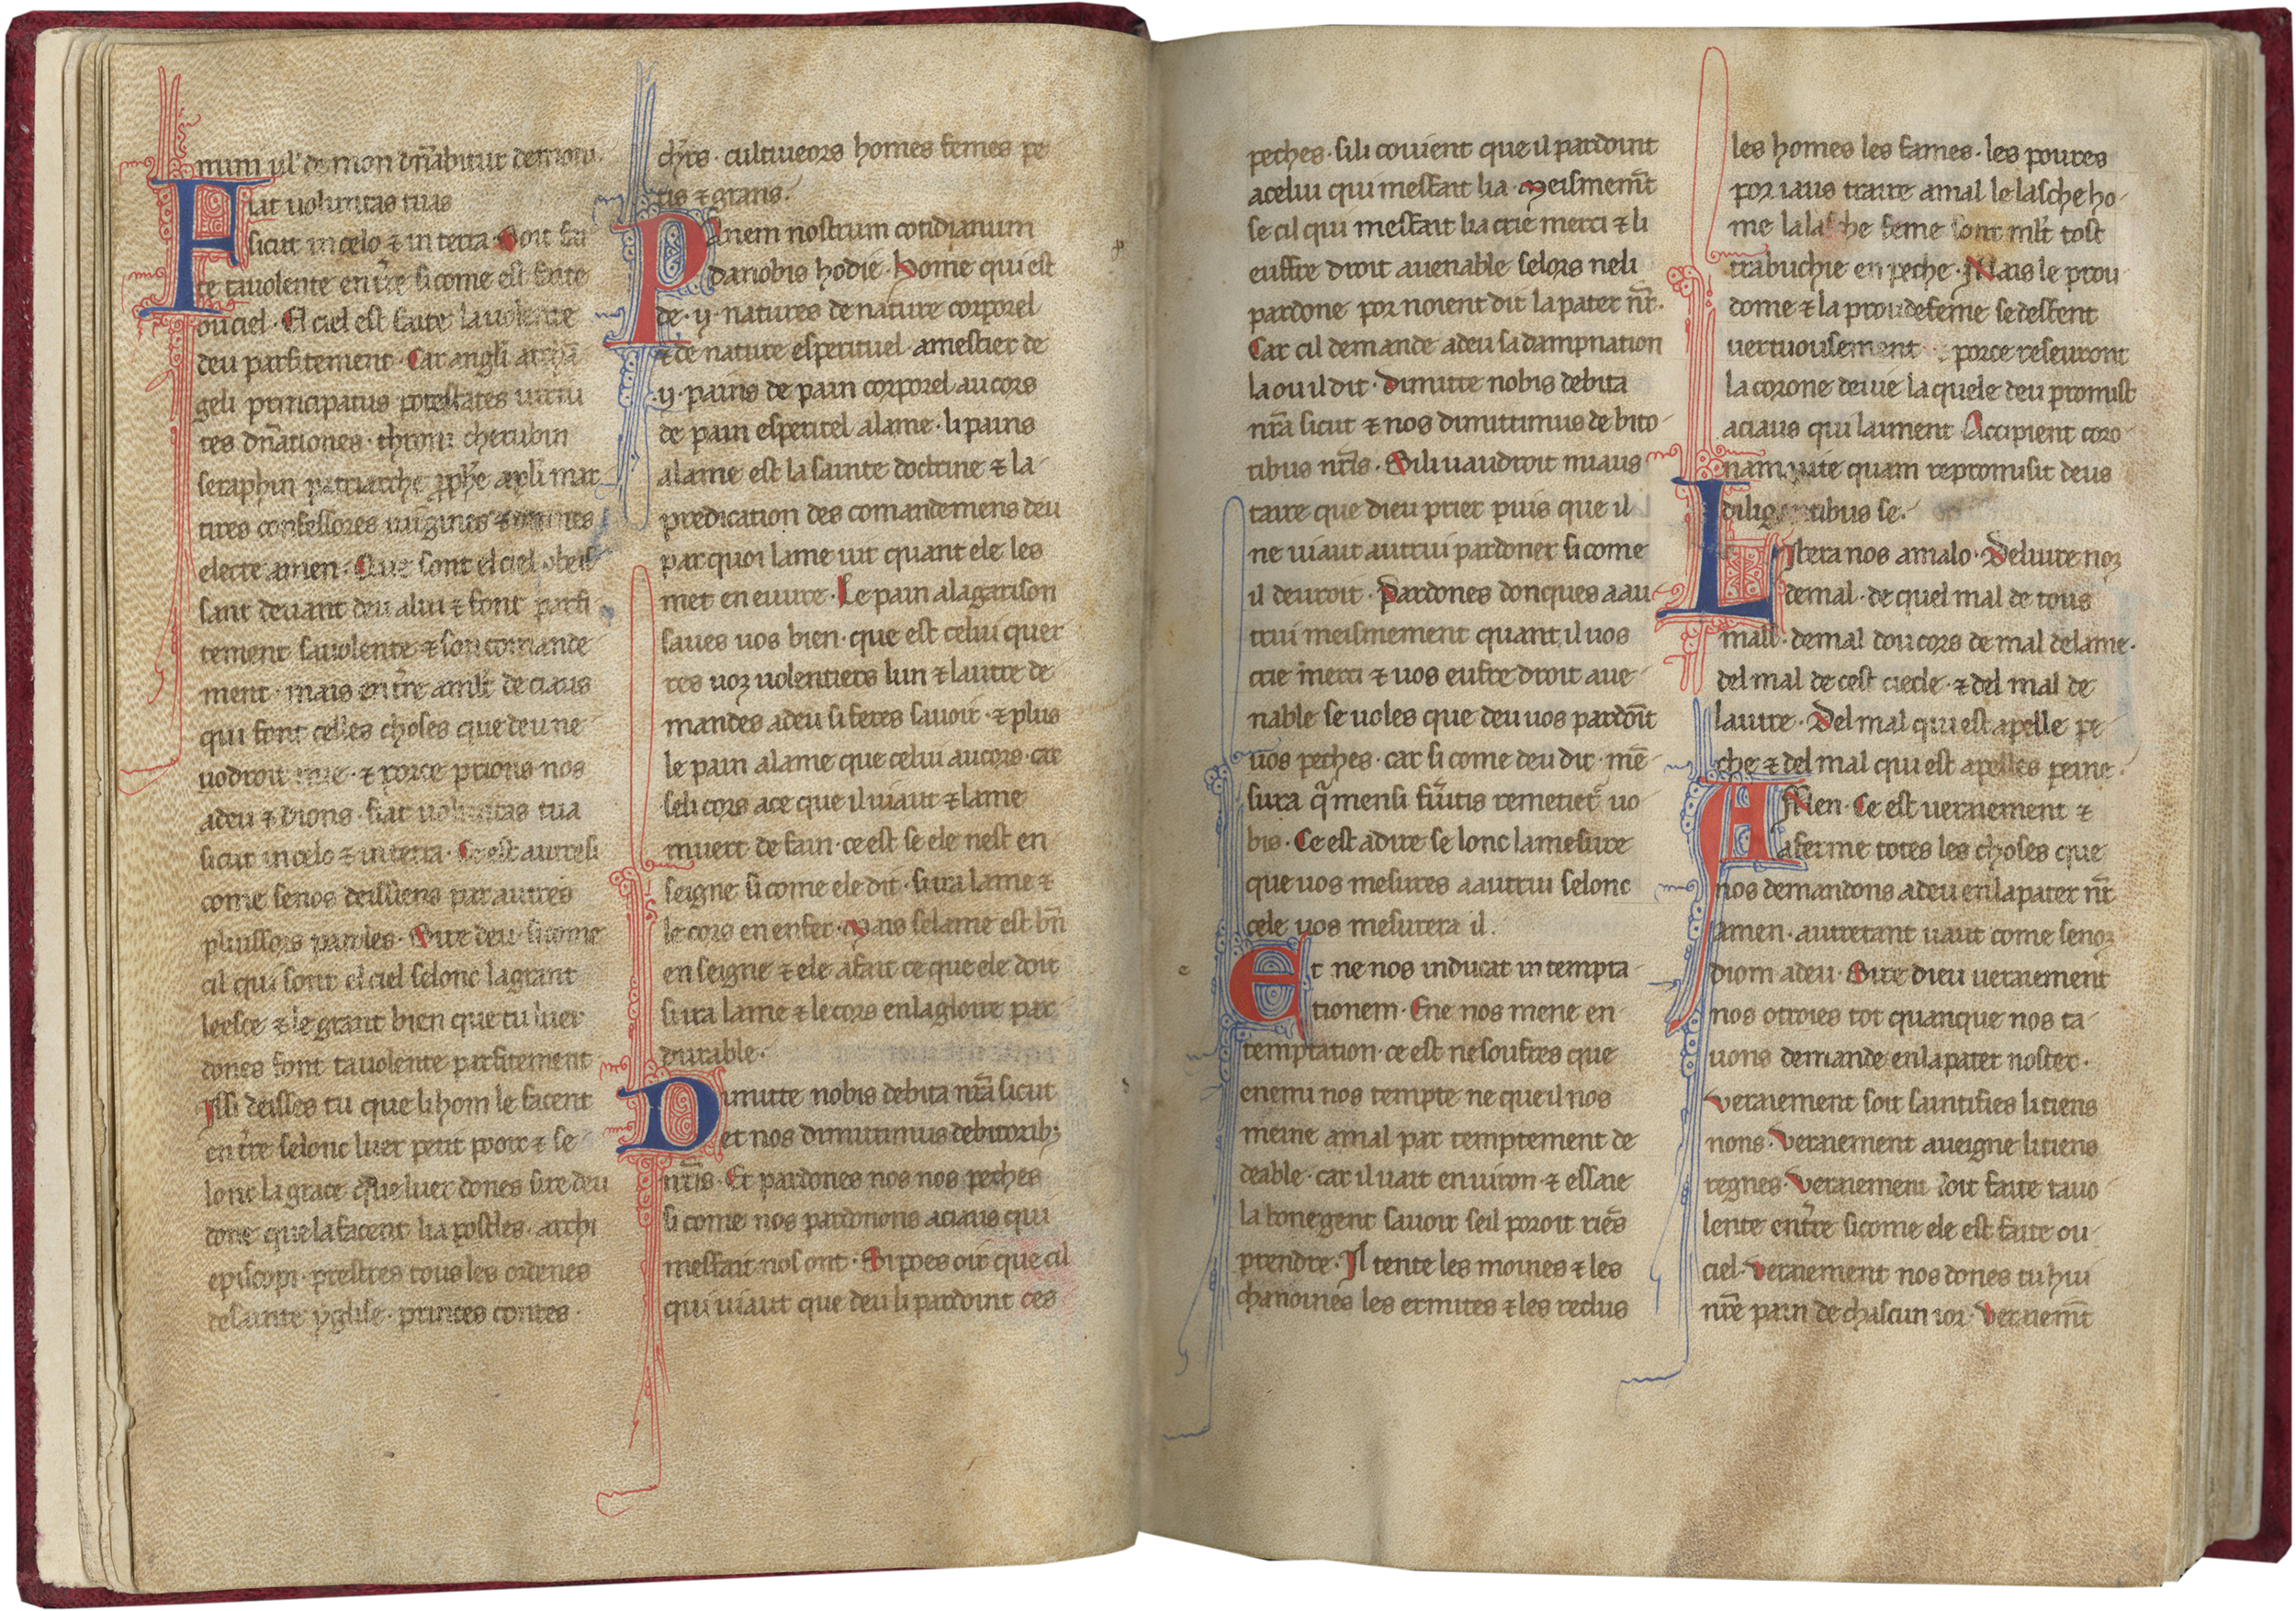 num ul' demon dñabitur demoni.
Fiat uoluntas tuas
sicut in celo ⁊ in terra. Soit fai
te ta uolente en tr̃e si come est faite
ou ciel. El ciel est faite la uolente
deu parfitement. Car angli archã
geli principatus potestates uirtu
tes dñationes. throni cherubin
seraphin patriarche ꝓphe apl̃i mar
tires confessores uirgines ⁊ omnes
electe amen. Que sont el ciel obeis
sant deuant deu a lui ⁊ font parfi
tement sa uolente ⁊ son comande
ment. mais en tr̃e a ml̃t de ciaus
qui font celles choses que deu ne
uodroit mie. ⁊ porce prions nos
a deu ⁊ dions. fiat uoluntas tua
sicut in celo ⁊ in terra. Ce est autresi
come se nos deissiens par autres
pluissors paroles. Sire deu si come
cil qui sont el ciel selonc la grant
leesce ⁊ le grant bien que tu luer
dones font ta uolente parfitement
Issi deisses tu que li hom le facent
en tr̃e selonc luer petit pooir ⁊ se
lonc la grace que luer dones sire deu
done que la facent li apostles. archi
episcopi. prestres tous les ordenes
de sainte yglise. princes contes.
ch̃rs. cultiueors homes femes pe
tis ⁊ grans.
Panem nostrum cotidianum
da nobis hodie. Home qui est
de .ij. natures de nature corporel
⁊ de nature esperituel a mestier de
.ij. pains de pain corporel au cors
de pain esperitel a lame. li pains
a lame est la sainte doctrine ⁊ la
predication des comandemens deu
par quoi lame uit quant ele les
met en euure. Le pain a la garison
saues uos bien. que est celui quer
res uoz uolentiers lun ⁊ lautre de
mandes a deu si feres sauoir. ⁊ plus
le pain a lame que celui au cors. car
se li cors a ce que il uiaut ⁊ lame
muert de fain. ce est se ele nest en
seigne si come ele dit. si ira lame ⁊
le cors en enfer. Mais se lame est bñ
enseigne ⁊ ele a fait ce que ele doit
si ira lame ⁊ le cors en la gloire par
durable.
Dimitte nobis debita nr̃a sicut
et nos dimittimus debitorib;
nr̃is. Et pardones nos nos peches
si come nos pardonons a ciaus qui
mesfait nos ont. Si poes oir que cil
qui uiaut que deu li pardoint ces
peches. si li couient que il pardoint
a celui qui mesfait li a. Meismem̃t
se cil qui mesfait li a crie merci ⁊ li
euffre droit auenable se lors ne li
pardone por noient dit la pater nr̃.
Car cil demande a deu sa dampnation
la ou il dit. Dimitte nobis debita
nr̃a sicut ⁊ nos dimittimus debito
ribus nr̃is. Si li uaudroit miaus
taire que dieu prier puis que il
ne uiaut autrui pardoner si come
il deuroit. Pardones donques a au
trui meismement quant il uos
crie merci ⁊ uos euffre droit aue
nable se uoles que deu uos pardoĩt
uos peches. car si come deu dit. mẽ
sura q̃ mensi fũitis remetiet̃ uo
bis. Ce est a dire se lonc la mesure
que uos mesures a autrui selonc
cele uos mesurera il.
Et ne nos inducat in tempta
tionem. Ene nos mene en
temptation. ce est ne soufres que
enemi nos tempte ne que il nos
meine a mal par temptement de
deable. car il uait enuiron ⁊ essaie
la bone gent sauoir se il poroit riẽs
prendre. Il tente les moines ⁊ les
chanoines les ermites ⁊ les reclus
les homes les fames. les poures
por iaus traire a mal le lasche ho
me la lasche feme sont ml̃t tost
trabuchie en peche. Mais le prou
dome ⁊ la proudefeme se desfent
uertuousement porce reseuront
la corone de uie la quele deu promist
a ciaus qui laiment Accipient coro
nam uite quam repromisit deus
diligentibus se.
Libera nos a malo. Deliure noz
de mal. de quel mal de tous
mall. de mal dou cors de mal de lame.
del mal de cest ciecle. ⁊ del mal de
lautre. Del mal qui est apelle pe
che ⁊ del mal qui est apelles peine.
AMen. Ce est ueraiement ⁊
aferme totes les choses que
nos demandons a deu en la pater nr̃
amen. autretant uaut come se noz
diom a deu. Sire dieu ueraiement
nos otroies tot quanque nos ta
uons demande en la pater noster.
Veraiement soit saintifies li tiens
nons. Veraiement aueigne li tiens
regnes. Veraiement soit faite ta uo
lente en tr̃e si come ele est faite ou
ciel. Veraiement nos dones tu hui
nr̃e pain de chascun ior. Veraiem̃t